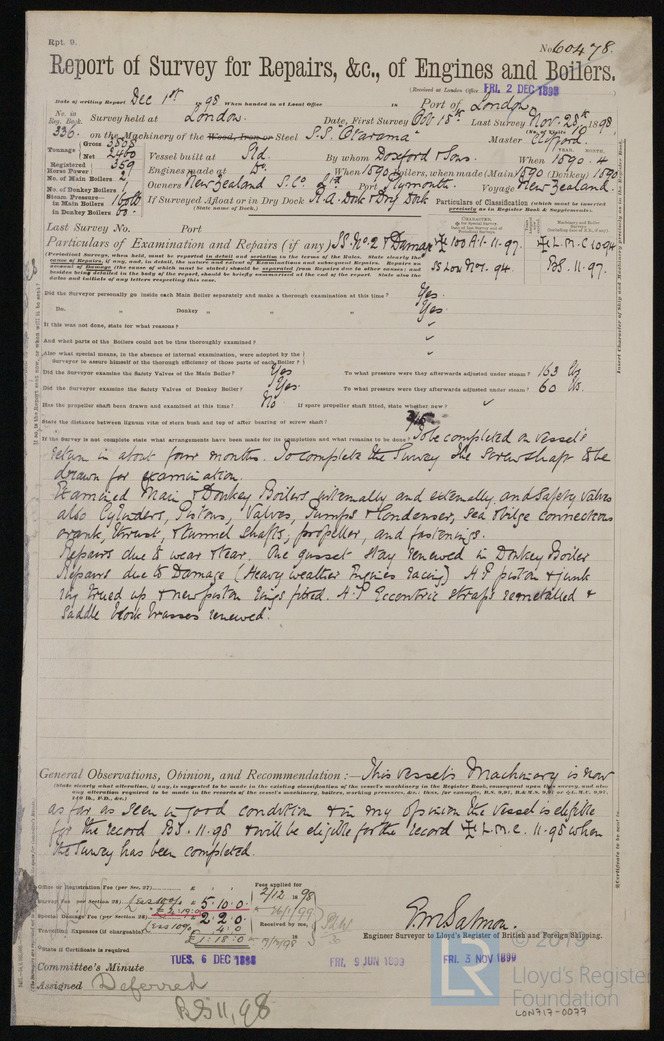 Rpt. 9.
No. 60478.
Report of Survey for Repairs, &c., of Engines and Boilers.
(Received at London Office FRI. 2 DEC 1898
Date of writing Report Dec 1st 1898 When handed in at Local Office 18 Port of London
No. in Reg. Book. Survey held at London. Date, First Survey Oct 18th Last Survey Nov. 28th 1898
336. on the Machinery of the Wood, Iron or Steel S.S. "Otarama" Master Clifford.
Tonnage Gross 3808 Net 2460 Vessel built at Sld. By whom Doxford & Sons. When 1890. 4
Registered Horse Power 359 Engines made at Do. When 1890 Boilers, when made (Main) 1890 (Donkey) 1890
No. of Main Boilers 2 Owners New Zealand S. Co. Ltd. Port Plymouth. Voyage New Zealand.
No. of Donkey Boilers 1
Steam Pressure in Main Boilers 160 lb If Surveyed Afloat or in Dry Dock R. A. Dock & Dry Dock
in Donkey Boilers 60. (State name of Dock.)
Particulars of Classification (which must be inserted precisely as in Register Book & Supplements).
Last Survey No. Port
Particulars of Examination and Repairs (if any) SS No. 2 & Damage 100 A.1. 11.97. L.M.C. 10.94
SS Lon Nov. 94. BS. 11.97.
(Periodical Surveys, when held, must be reported in detail and seriatim in the terms of the Rules. State clearly the
cause of Repairs, if any, and, in detail, the nature and extent of Examinations and subsequent Repairs. Repairs on
account of Damage (the cause of which must be stated) should be separated from Repairs due to other causes; and
besides being detailed in the body of the report, should be briefly summarised at the end of the report. State also the
dates and initials of any letters respecting this case.
Did the Surveyor personally go inside each Main Boiler separately and make a thorough examination at this time? Yes.
Do. " Donkey " " " Yes.
If this was not done, state for what reasons?
And what parts of the Boilers could not be thus thoroughly examined?
Also what special means, in the absence of internal examination, were adopted by the
Surveyor to assure himself of the thorough efficiency of those parts of each Boiler?
Did the Surveyor examine the Safety Valves of the Main Boiler? Yes To what pressure were they afterwards adjusted under steam? 163 lbs
Did the Surveyor examine the Safety Valves of Donkey Boiler? Yes. To what pressure were they afterwards adjusted under steam? 60 lbs.
Has the propeller shaft been drawn and examined at this time? No If spare propeller shaft fitted, state whether new?
State the distance between lignum vitæ of stern bush and top of after bearing of screw shaft?
If the Survey is not complete state what arrangements have been made for its completion and what remains to be done? To be completed on vessel's
return in about four months. To complete the Survey the screwshaft to be
drawn for examination.
Examined Main & Donkey Boilers internally and externally, and Safety Valves
also Cylinders, Pistons, Valves, Pumps & Condenser, sea & bilge connections
crank, thrust, & tunnel shafts, propeller, and fastenings.
Repairs due to wear & tear. One gusset stay renewed in Donkey Boiler
Repairs due to Damage (Heavy weather Engines racing) H.P. piston & junk
ring trued up & new piston rings fitted. H.P. Eccentric straps remetalled &
Saddle block brasses renewed.
General Observations, Opinion, and Recommendation:— This vessel's Machinery is now
(State clearly what alteration, if any, is suggested to be made in the existing classification of the vessel's machinery in the Register Book, consequent upon this survey, and also
any alteration required to be made in the records of the vessel's machinery, boilers, working pressures, &c.; thus, for example, B.S. 9,97, B.&M.S. 9,97 or L.M.C. 9,97,
140 lb., F.D., &c.)
as far as seen in good condition & in my opinion the vessel is eligible
for the record BS. 11.98 & will be eligible for the record L.M.C. 11.98 when
the Survey has been completed.
Office or Registration Fee (per Sec. 27) £
Survey Fee (per Section 28) (Less 10%) £ 5.10.0 Fees applied for 2/12 1898
Special Damage Fee (per Section 28) £ 2.2.0 26/1/99
Travelling Expenses (if chargeable) (Less 10% £ :4:0 Received by me,
£1.18.0
State if Certificate is required
E.M. Salmon.
Engineer Surveyor to Lloyd's Register of British and Foreign Shipping.
TUES. 6 DEC 1898 FRI. 9 JUN 1899 FRI. 3 NOV 1899
Committee's Minute
Assigned Deferred
BS 11,98
LR © 2019
Lloyd's Register
Foundation
LON717-0077